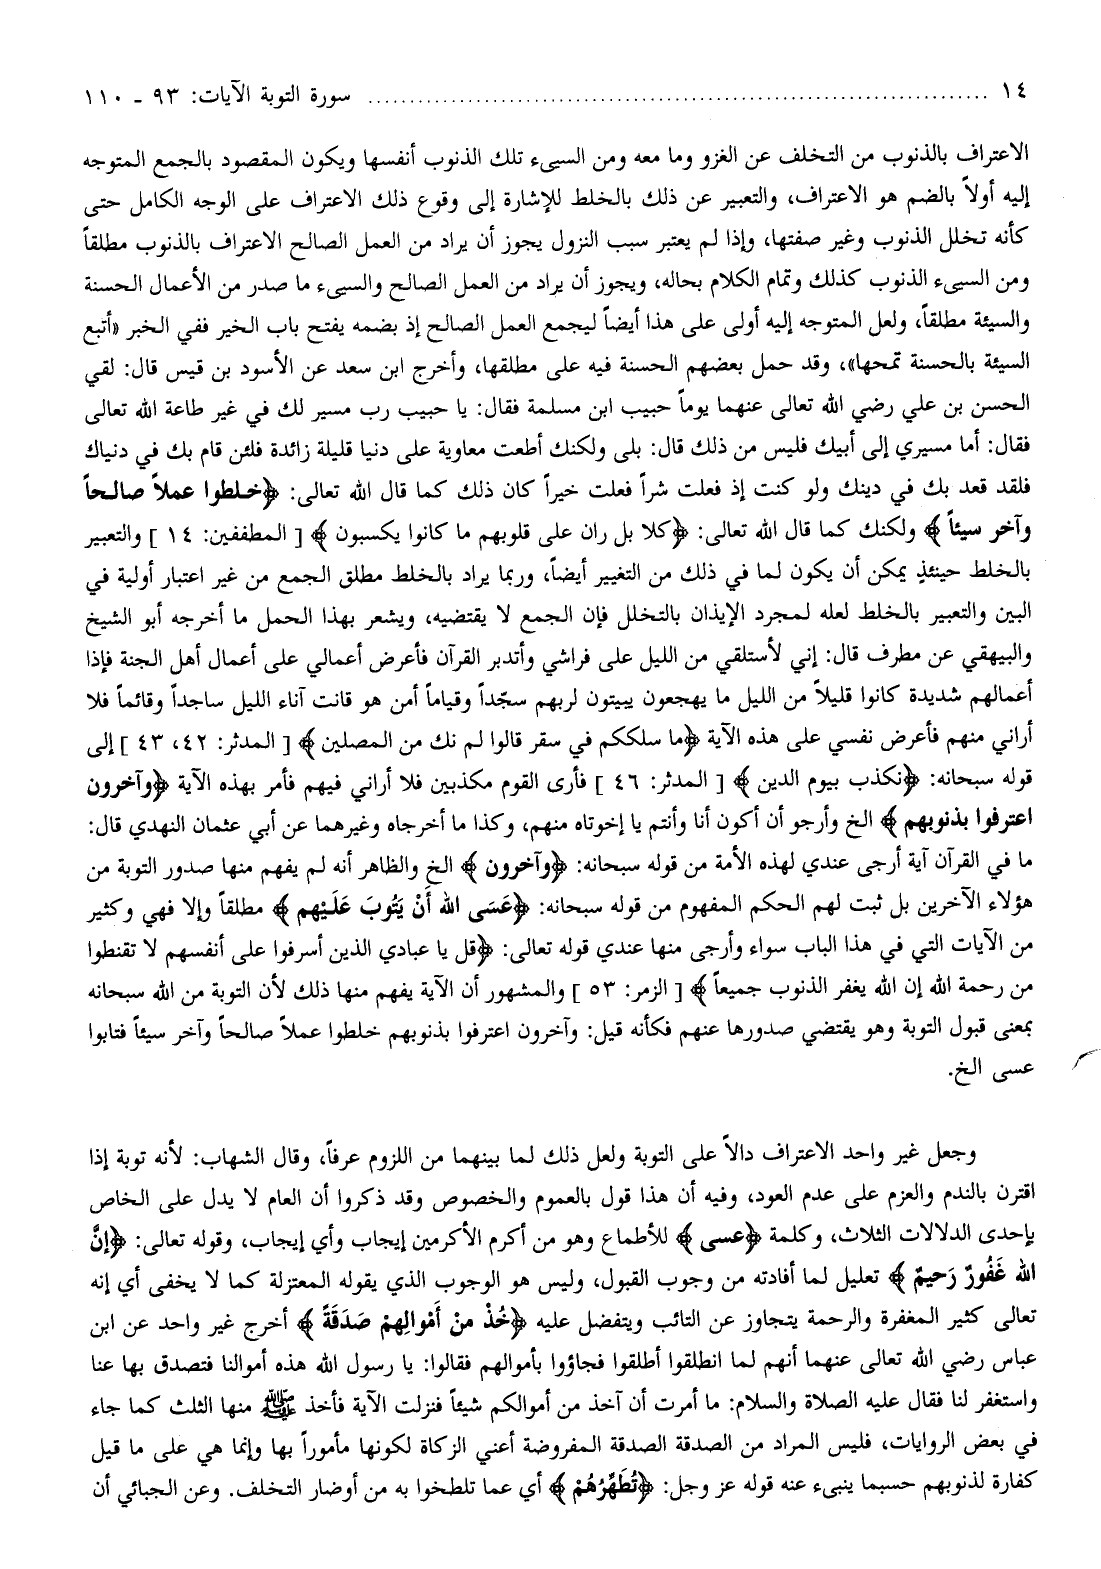 ١٤ ........................................................................... سورة التوبة الآيات: ٩٣ ـ ١١٠
الاعتراف بالذنوب من التخلف عن الغزو وما معه ومن السيىء تلك الذنوب أنفسها ويكون المقصود بالجمع المتوجه
إليه أولاً بالضم هو الاعتراف، والتعبير عن ذلك بالخلط للإشارة إلى وقوع ذلك الاعتراف على الوجه الكامل حتى
كأنه تخلل الذنوب وغير صفتها، وإذا لم يعتبر سبب النزول يجوز أن يراد من العمل الصالح الاعتراف بالذنوب مطلقاً
ومن السيىء الذنوب كذلك وتمام الكلام بحاله، ويجوز أن يراد من العمل الصالح والسيىء ما صدر من الأعمال الحسنة
والسيئة مطلقاً، ولعل المتوجه إليه أولى على هذا أيضاً ليجمع العمل الصالح إذ بضمه يفتح باب الخير ففي الخبر «أتبع
السيئة بالحسنة تمحها»، وقد حمل بعضهم الحسنة فيه على مطلقها، وأخرج ابن سعد عن الأسود بن قيس قال: لقي
الحسن بن علي رضي الله تعالى عنهما يوماً حبيب ابن مسلمة فقال: يا حبيب رب مسير لك في غير طاعة الله تعالى
فقال: أما مسيري إلى أبيك فليس من ذلك قال: بلى ولكنك أطعت معاوية على دنيا قليلة زائدة فلئن قام بك في دنياك
فلقد قعد بك في دينك ولو كنت إذ فعلت شراً فعلت خيراً كان ذلك كما قال الله تعالى: ﴿خلطوا عملاً صالحاً
وآخر سيئاً﴾ ولكنك كما قال الله تعالى: ﴿كلا بل ران على قلوبهم ما كانوا يكسبون﴾ [ المطففين: ١٤ ] والتعبير
بالخلط حينئذٍ يمكن أن يكون لما في ذلك من التغيير أيضاً، وربما يراد بالخلط مطلق الجمع من غير اعتبار أولية في
البين والتعبير بالخلط لعله لمجرد الإيذان بالتخلل فإن الجمع لا يقتضيه، ويشعر بهذا الحمل ما أخرجه أبو الشيخ
والبيهقي عن مطرف قال: إني لأستلقي من الليل على فراشي وأتدبر القرآن فأعرض أعمالي على أعمال أهل الجنة فإذا
أعمالهم شديدة كانوا قليلاً من الليل ما يهجعون يبيتون لربهم سجّداً وقياماً أمن هو قانت آناء الليل ساجداً وقائماً فلا
أراني منهم فأعرض نفسي على هذه الآية ﴿ما سلككم في سقر قالوا لم نك من المصلين﴾ [ المدثر: ٤٢، ٤٣ ] إلى
قوله سبحانه: ﴿نكذب بيوم الدين﴾ [ المدثر: ٤٦ ] فأرى القوم مكذبين فلا أراني فيهم فأمر بهذه الآية ﴿وآخرون
اعترفوا بذنوبهم﴾ الخ وأرجو أن أكون أنا وأنتم يا إخوتاه منهم، وكذا ما أخرجاه وغيرهما عن أبي عثمان النهدي قال:
ما في القرآن آية أرجى عندي لهذه الأمة من قوله سبحانه: ﴿وآخرون﴾ الخ والظاهر أنه لم يفهم منها صدور التوبة من
هؤلاء الآخرين بل ثبت لهم الحكم المفهوم من قوله سبحانه: ﴿عَسَى الله أَنْ يَتُوبَ عَلَيْهم﴾ مطلقاً وإلا فهي وكثير
من الآيات التي في هذا الباب سواء وأرجى منها عندي قوله تعالى: ﴿قل يا عبادي الذين أسرفوا على أنفسهم لا تقنطوا
من رحمة الله إن الله يغفر الذنوب جميعاً﴾ [ الزمر: ٥٣ ] والمشهور أن الآية يفهم منها ذلك لأن التوبة من الله سبحانه
بمعنى قبول التوبة وهو يقتضي صدورها عنهم فكأنه قيل: وآخرون اعترفوا بذنوبهم خلطوا عملاً صالحاً وآخر سيئاً فتابوا
عسى الخ.
وجعل غير واحد الاعتراف دالاً على التوبة ولعل ذلك لما بينهما من اللزوم عرفاً، وقال الشهاب: لأنه توبة إذا
اقترن بالندم والعزم على عدم العود، وفيه أن هذا قول بالعموم والخصوص وقد ذكروا أن العام لا يدل على الخاص
بإحدى الدلالات الثلاث، وكلمة ﴿عسى﴾ للأطماع وهو من أكرم الأكرمين إيجاب وأي إيجاب، وقوله تعالى: ﴿إنَّ
الله غَفُورٌ رَحيمٌ﴾ تعليل لما أفادته من وجوب القبول، وليس هو الوجوب الذي يقوله المعتزلة كما لا يخفى أي إنه
تعالى كثير المغفرة والرحمة يتجاوز عن التائب ويتفضل عليه ﴿خُذْ منْ أَمْوالِهمْ صَدَقَةً﴾ أخرج غير واحد عن ابن
عباس رضي الله تعالى عنهما أنهم لما انطلقوا أطلقوا فجاؤوا بأموالهم فقالوا: يا رسول الله هذه أموالنا فتصدق بها عنا
واستغفر لنا فقال عليه الصلاة والسلام: ما أمرت أن آخذ من أموالكم شيئاً فنزلت الآية فأخذ ﷺ منها الثلث كما جاء
في بعض الروايات، فليس المراد من الصدقة الصدقة المفروضة أعني الزكاة لكونها مأموراً بها وإنما هي على ما قيل
كفارة لذنوبهم حسبما ينبىء عنه قوله عز وجل: ﴿تُطَهِّرُهُمْ﴾ أي عما تلطخوا به من أوضار التخلف. وعن الجبائي أن